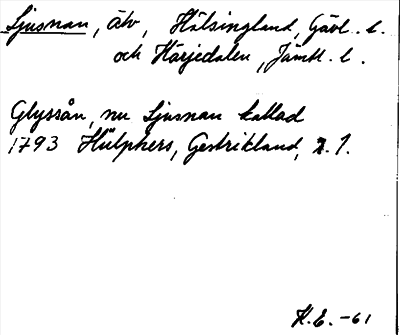 Ljusnan, älv, Hälsingland, Gävl. l.
och Härjedalen, Jämtl. l.
Glyssån, nu Ljusnan kallad
1793 Hülphers, Gestrikland, s. 1.
K.E. -61